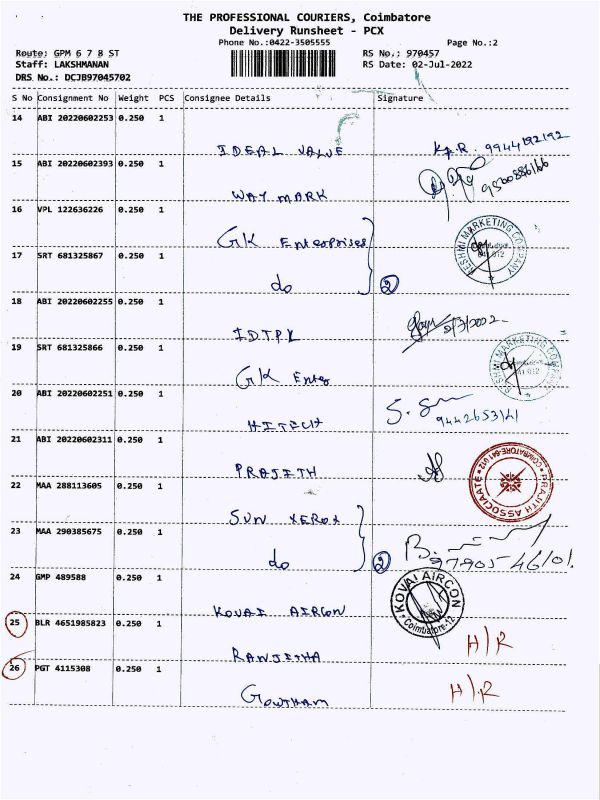 THE PROFESSIONAL COURIERS, Coimbatore
Delivery Runsheet - PCX
Phone No.:0422-3505555
Page No.:2
Route: GPM 6 7 8 ST
RS No.: 970457
Staff: LAKSHMANAN
RS Date: 02-Jul-2022
DRS No.: DCJB97045702
S No Consignment No Weight PCS Consignee Details Signature
14 ABI 20220602253 0.250 1
IDEAL VALUE Kp.R. 9944192192
15 ABI 20220602393 0.250 1
WAY MARK
16 VPL 122636226 0.250 1
GK Enterprises
RESHMI MARKETING COMPANY
17 SRT 681325867 0.250 1
do 2
18 ABI 20220602255 0.250 1
IDTPL
19 SRT 681325866 0.250 1
GK Enter
RESHMI MARKETING COMPANY
20 ABI 20220602251 0.250 1
HITECH
21 ABI 20220602311 0.250 1
PRAJITH
PRAJITH ASSOCIAATE COIMBATORE-641 012
22 MAA 288113605 0.250 1
SUN XEROX
23 MAA 290385675 0.250 1
do 2
24 GMP 489588 0.250 1
KOVAI AIRCON
KOVAI AIRCON Coimbatore-12
25 BLR 4651985823 0.250 1
RANJITHA H/R
26 PGT 4115308 0.250 1
GOWTHAM H/R